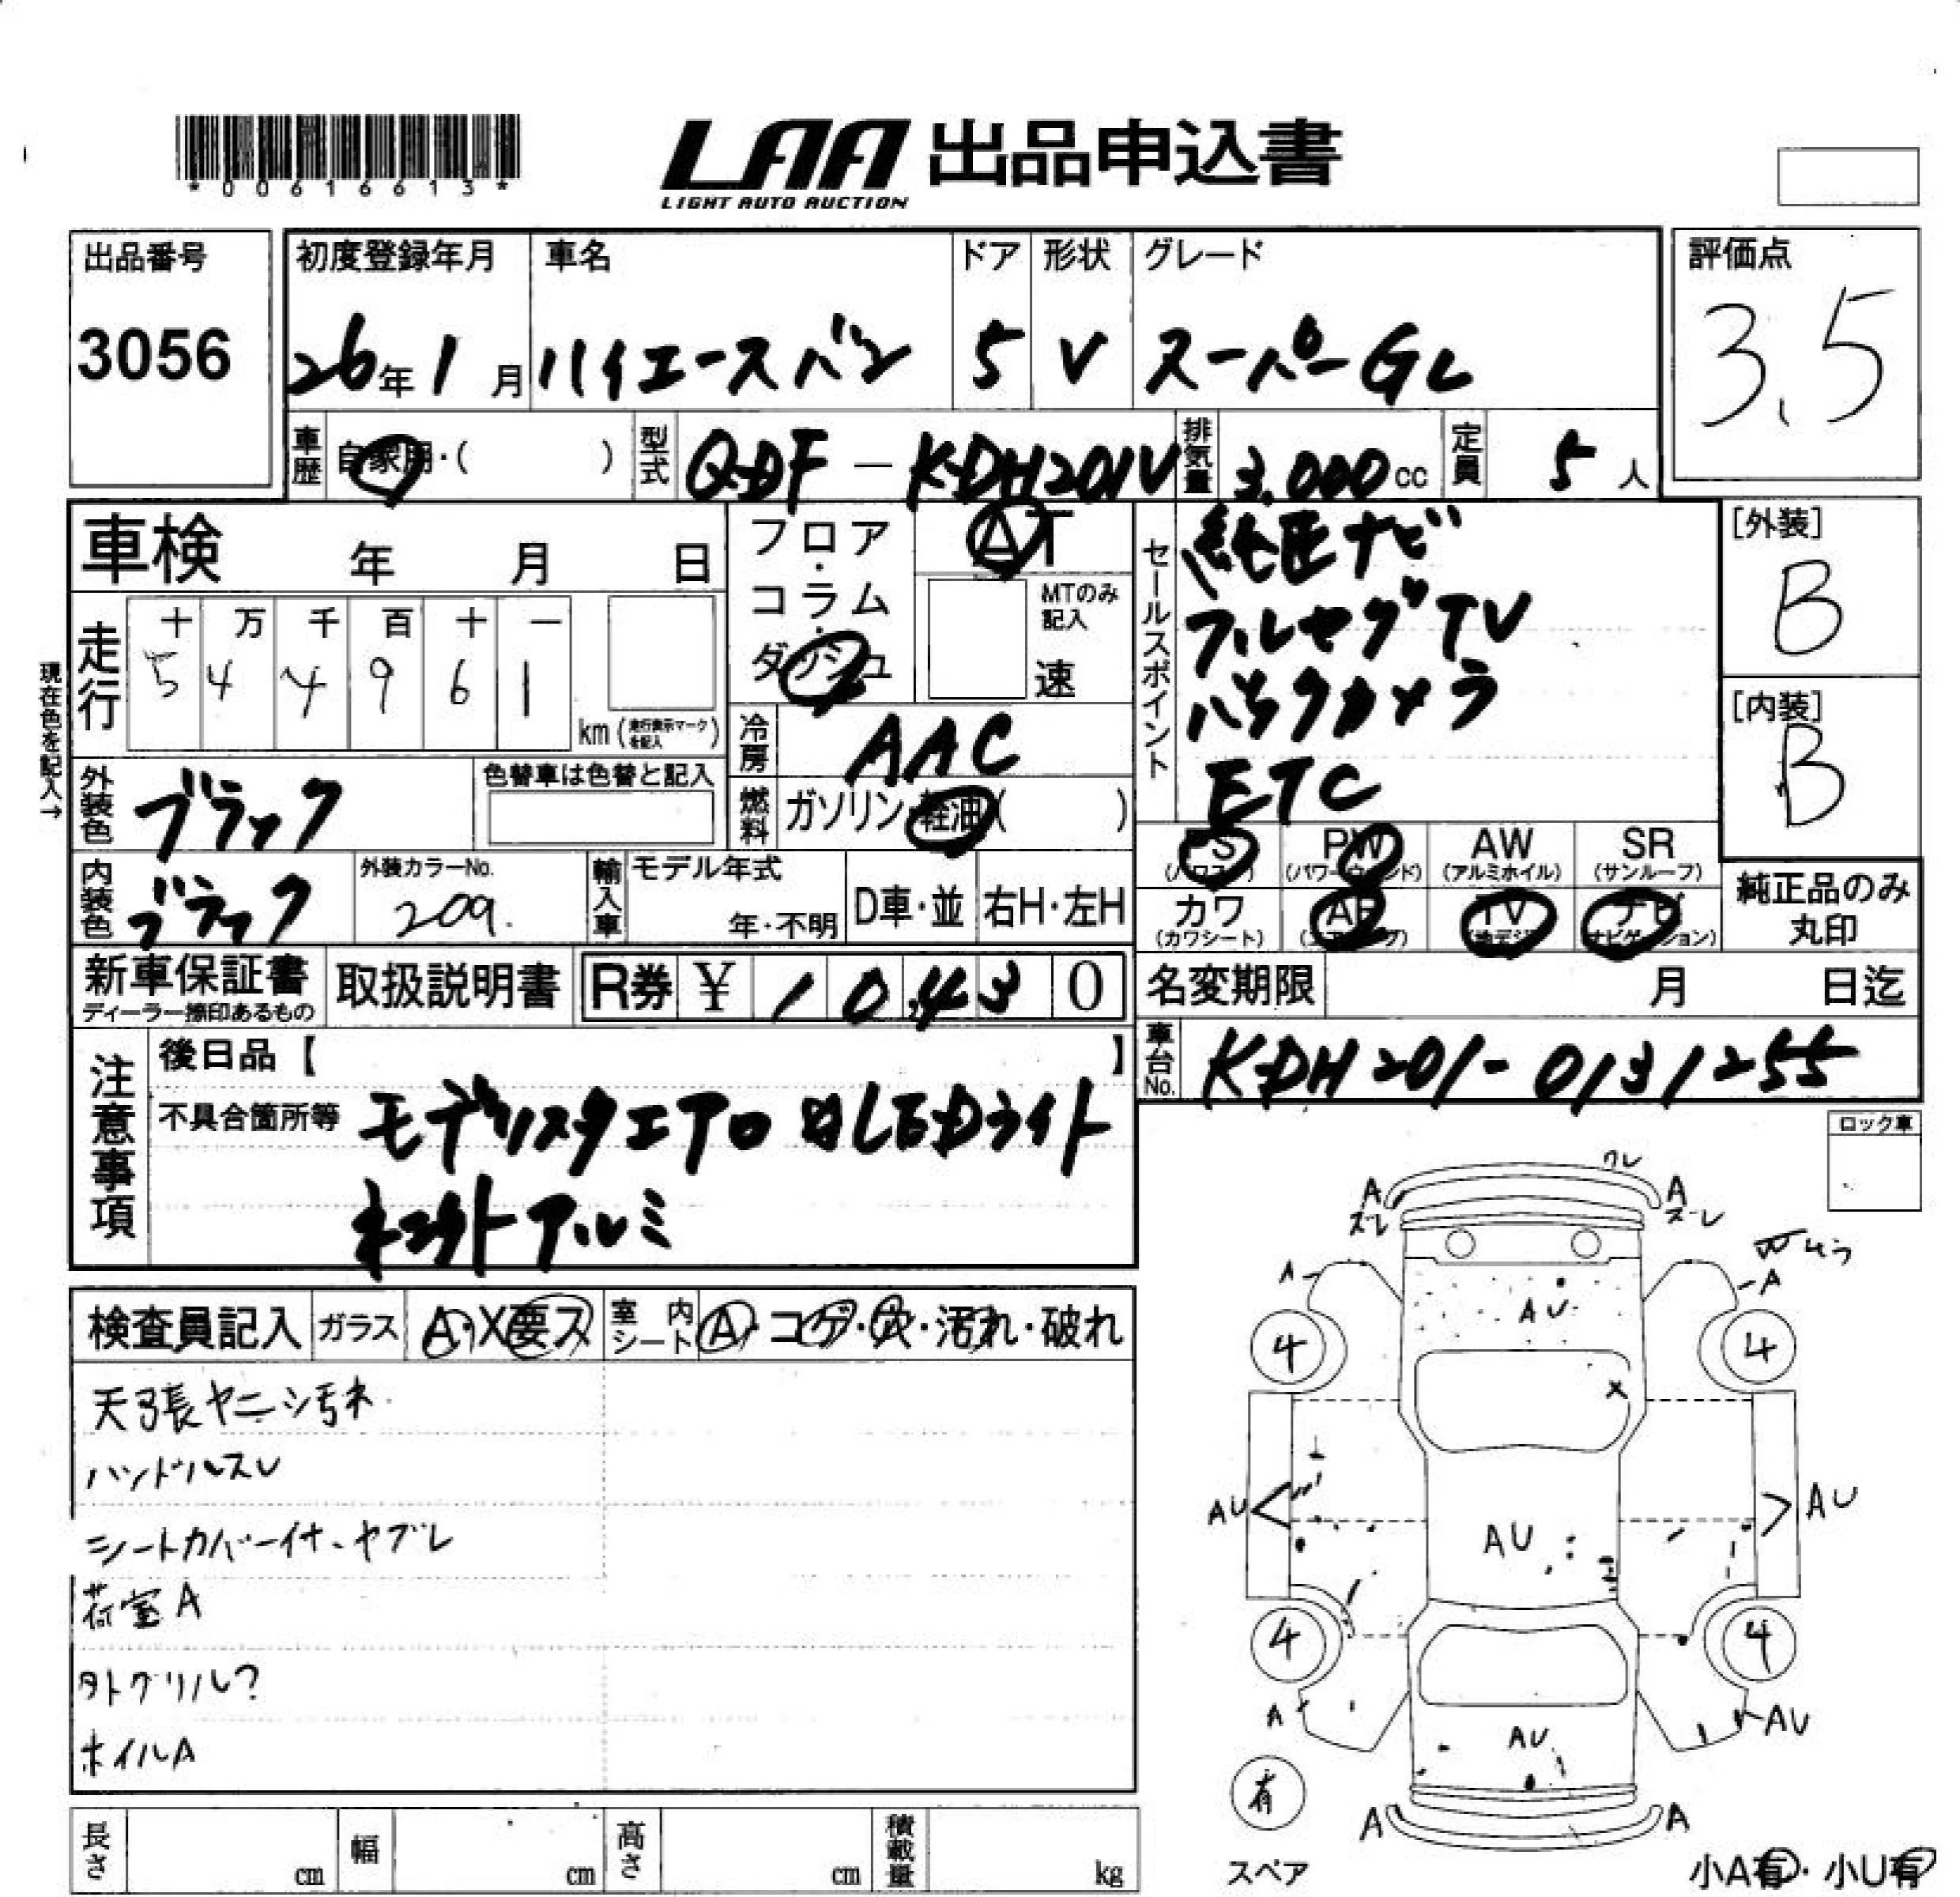 *00616613*
LAA 出品申込書
LIGHT AUTO AUCTION
出品番号 3056
初度登録年月 26年1月
車名 ハイエースバン
ドア 5
形状 V
グレード スーパーGL
評価点 3.5
車歴 自家用・( )
型式 QDF-KDH201V
排気量 3,000cc
定員 5人
車検 年 月 日
フロア・コラム・ダッシュ
AT
MTのみ記入 速
セールスポイント
純正ナビ
フルセグTV
バックカメラ
ETC
[外装] B
[内装] B
現在色を記入→
走行
十 万 千 百 十 一
5 4 4 9 6 1
km(走行表示マークを記入)
冷房 AAC
外装色 ブラック
色替車は色替と記入
燃料 ガソリン・軽油( )
PS (パワステ)
PW (パワーウィンド)
AW (アルミホイル)
SR (サンルーフ)
内装色 ブラック
外装カラーNo. 209
輸入車 モデル年式 年・不明
D車・並 右H・左H
カワ (カワシート)
AB (エアバッグ)
TV (地デジ)
ナビ (ナビゲーション)
純正品のみ丸印
新車保証書
ディーラー捺印あるもの
取扱説明書
R券 ¥ 10,430
名変期限 月 日迄
車台No. KDH201-0131255
注意事項
後日品【 】
不具合箇所等 モデリスタエアロ LEDライト
アルミ
ロック車
検査員記入
ガラス A・X要ス
室内シート A・コゲ・穴・汚れ・破れ
天張ヤニシ汚れ
ハンドルスレ
シートカバー付、ヤブレ
荷室A
外トグリル?
ホイルA
ワレ
A A
ズレ ズレ
A A
AU
4 4
X
AU AU
AU
4 4
A AU
AU
有
A A
スペア
小A有・小U有
長さ cm
幅 cm
高さ cm
積載量 kg